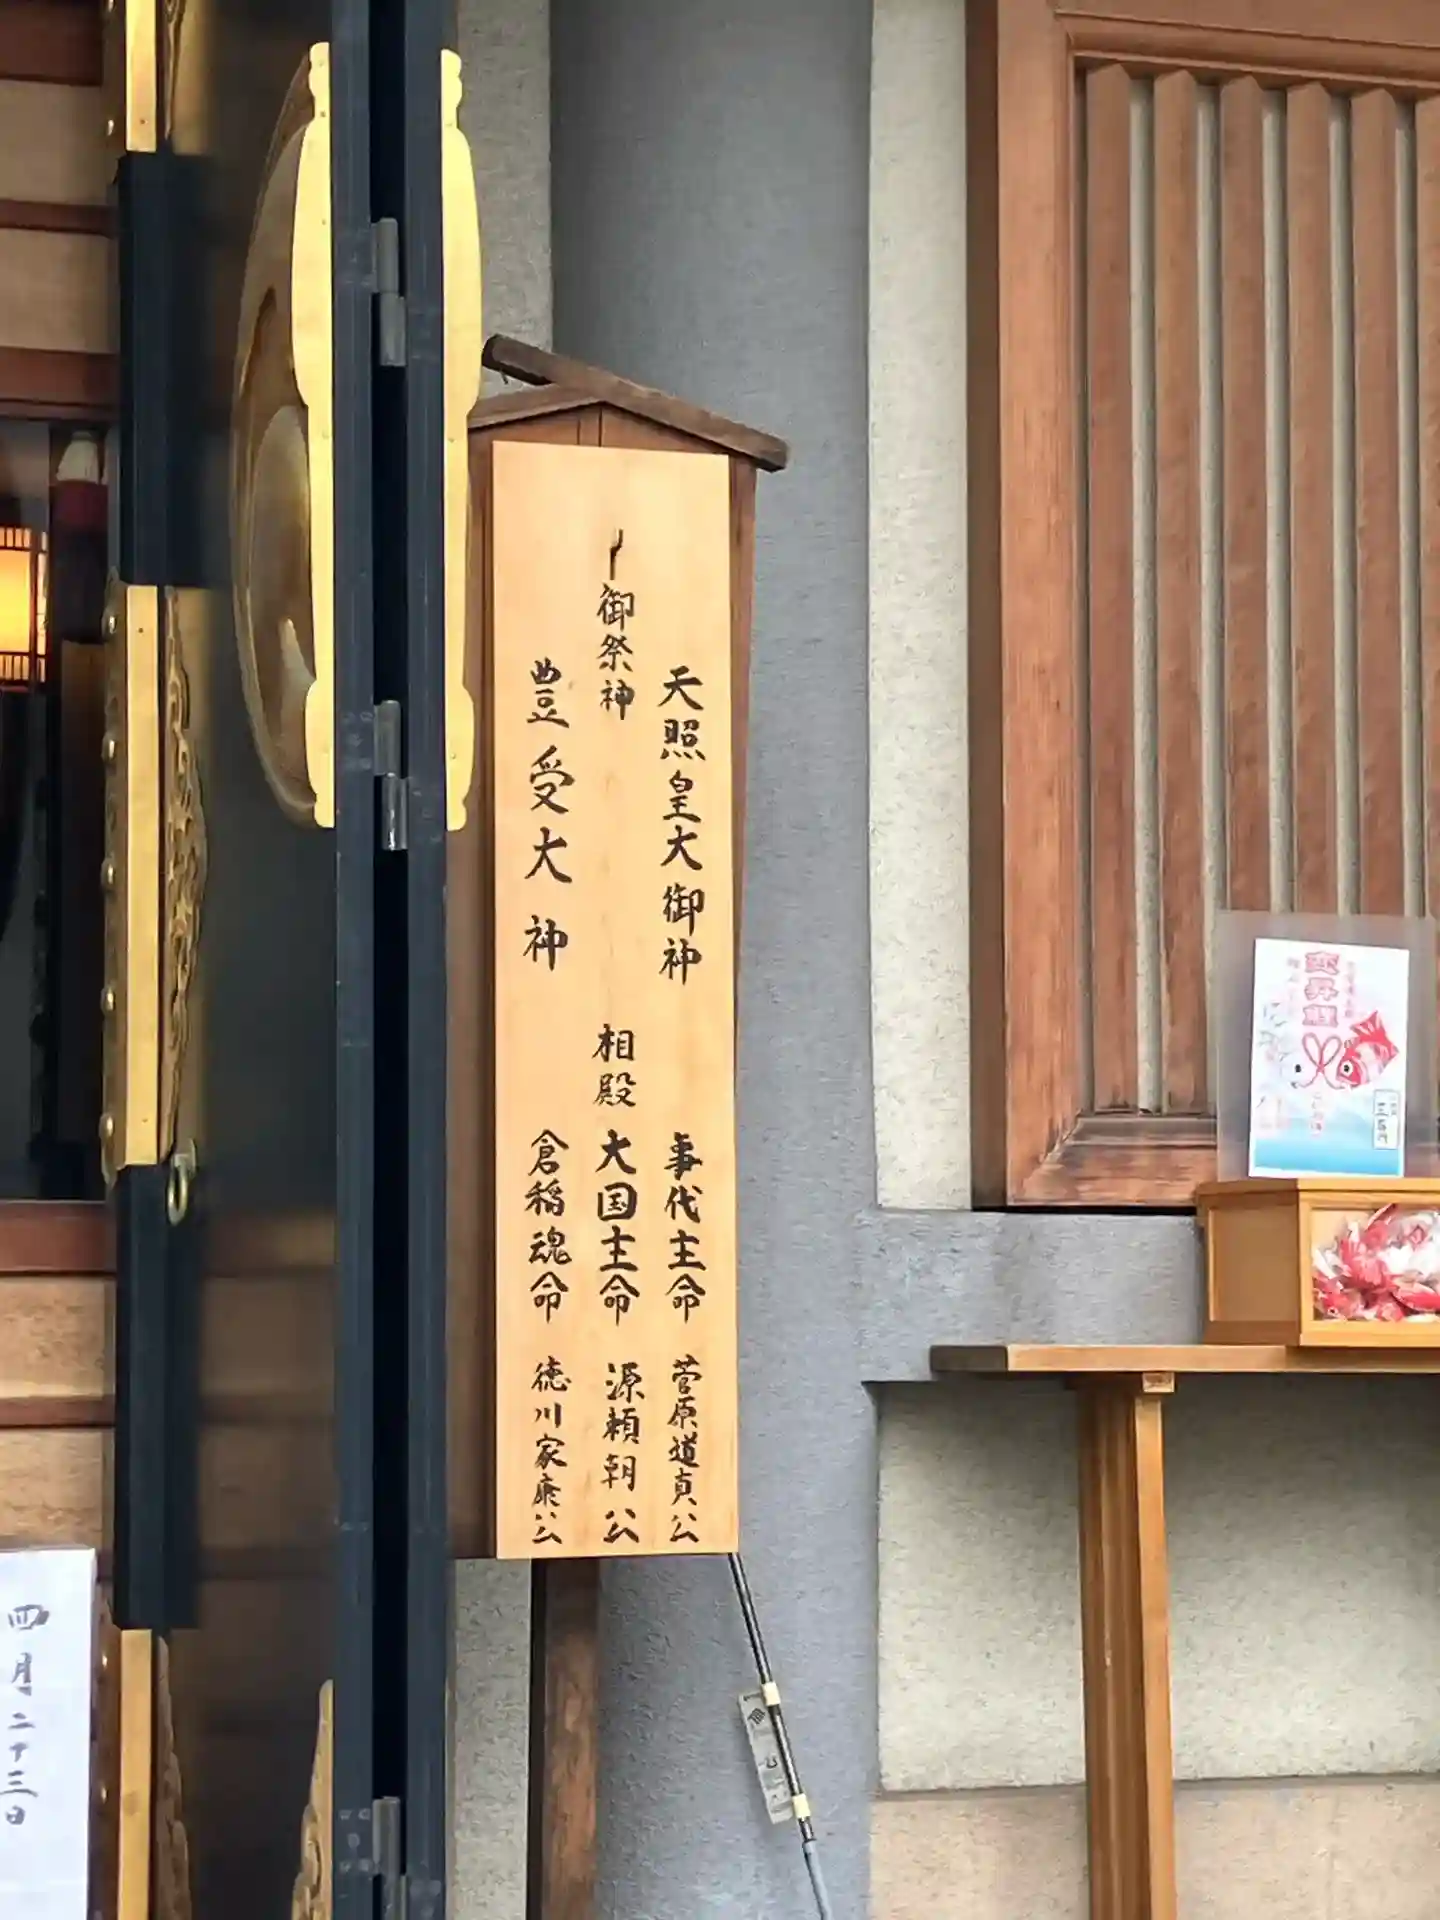 御祭神
天照皇大御神
豊受大神
相殿
事代主命
大国主命
倉稲魂命
菅原道真公
源頼朝公
徳川家康公
四月二十三日